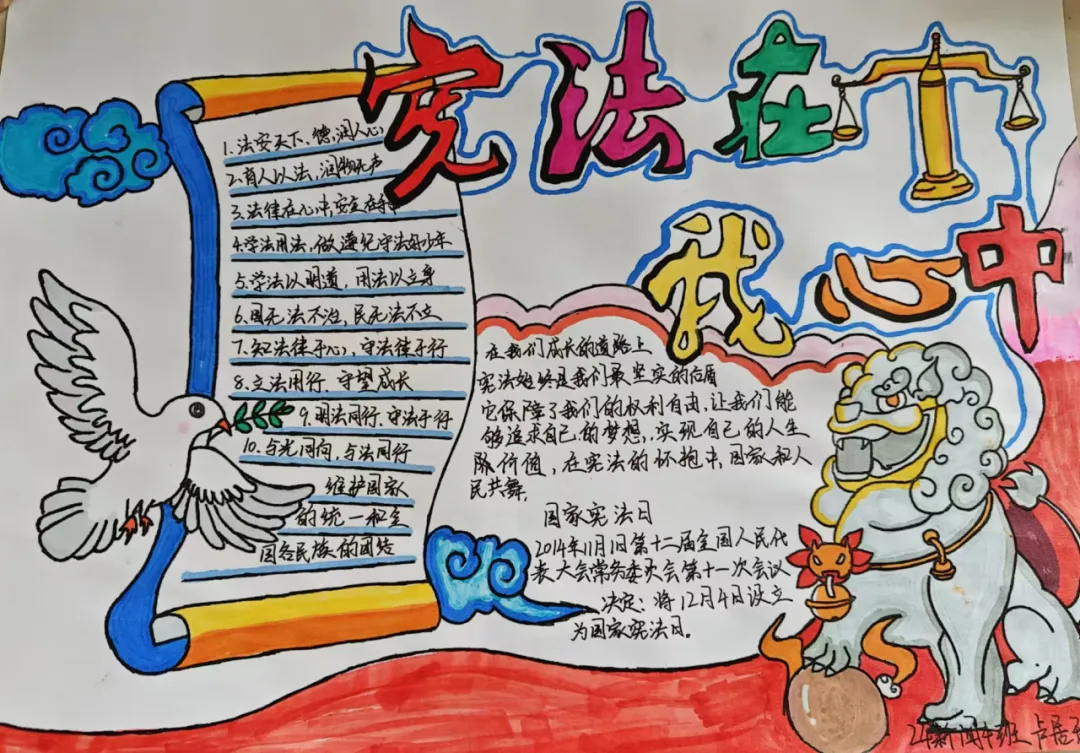 宪法在
我心中
1.法安天下、德润人心
2.育人以法,润物无声
3.法律在心中,安全在手
4.学法用法,做遵纪守法好少年
5.学法以明道,用法以立身
6.国无法不治,民无法不立
7.知法律于心,守法律于行
8.立法同行、守望成长
9.明法同行、守法于行
10.与光同向,与法同行
维护国家
的统一和全
国各民族的团结
在我们成长的道路上
宪法始终是我们最坚实的后盾
它保障了我们的权利自由,让我们能
够追求自己的梦想,实现自己的人生
价值,在宪法的怀抱中,国家和人
民共舞.
国家宪法日
2014年11月1日第十二届全国人民代
表大会常务委员会第十一次会议
决定:将12月4日设立
为国家宪法日。
24新闻班 卢居